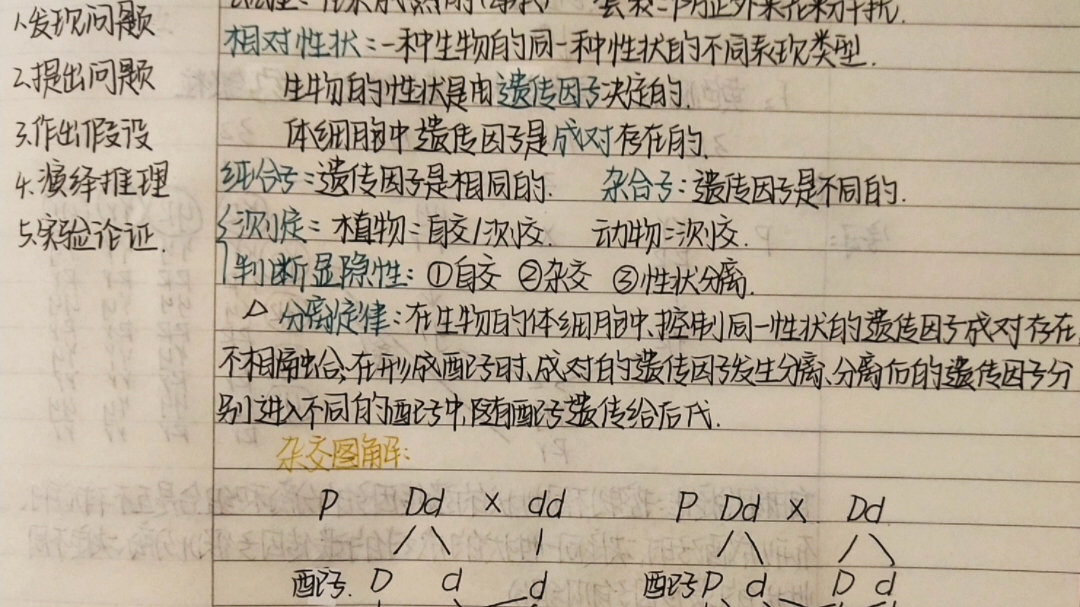 1.发现问题
2.提出问题
3.作出假设
4.演绎推理
5.实验论证.
相对性状:一种生物的同一种性状的不同表现类型.
生物的性状是由遗传因子决定的.
体细胞中遗传因子是成对存在的.
纯合子:遗传因子是相同的. 杂合子:遗传因子是不同的.
测定:植物:自交/测交. 动物:测交.
判断显隐性:①自交 ②杂交 ③性状分离.
△ 分离定律:在生物的体细胞中,控制同一性状的遗传因子成对存在,
不相融合;在形成配子时,成对的遗传因子发生分离,分离后的遗传因子分
别进入不同的配子中,随配子遗传给后代.
杂交图解:
P Dd × dd P Dd × Dd
配子 D d d 配子 D d D d